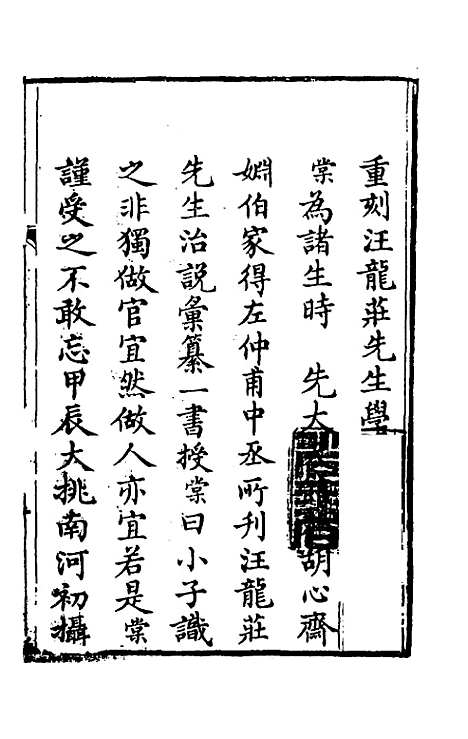 重刻汪龍莊先生學
棠為諸生時　先大胡心齋
婣伯家得左仲甫中丞所刊汪龍莊
先生治説彙纂一書授棠曰小子識
之非獨做官宜然做人亦宜若是棠
謹受之不敢忘甲辰大挑南河初攝